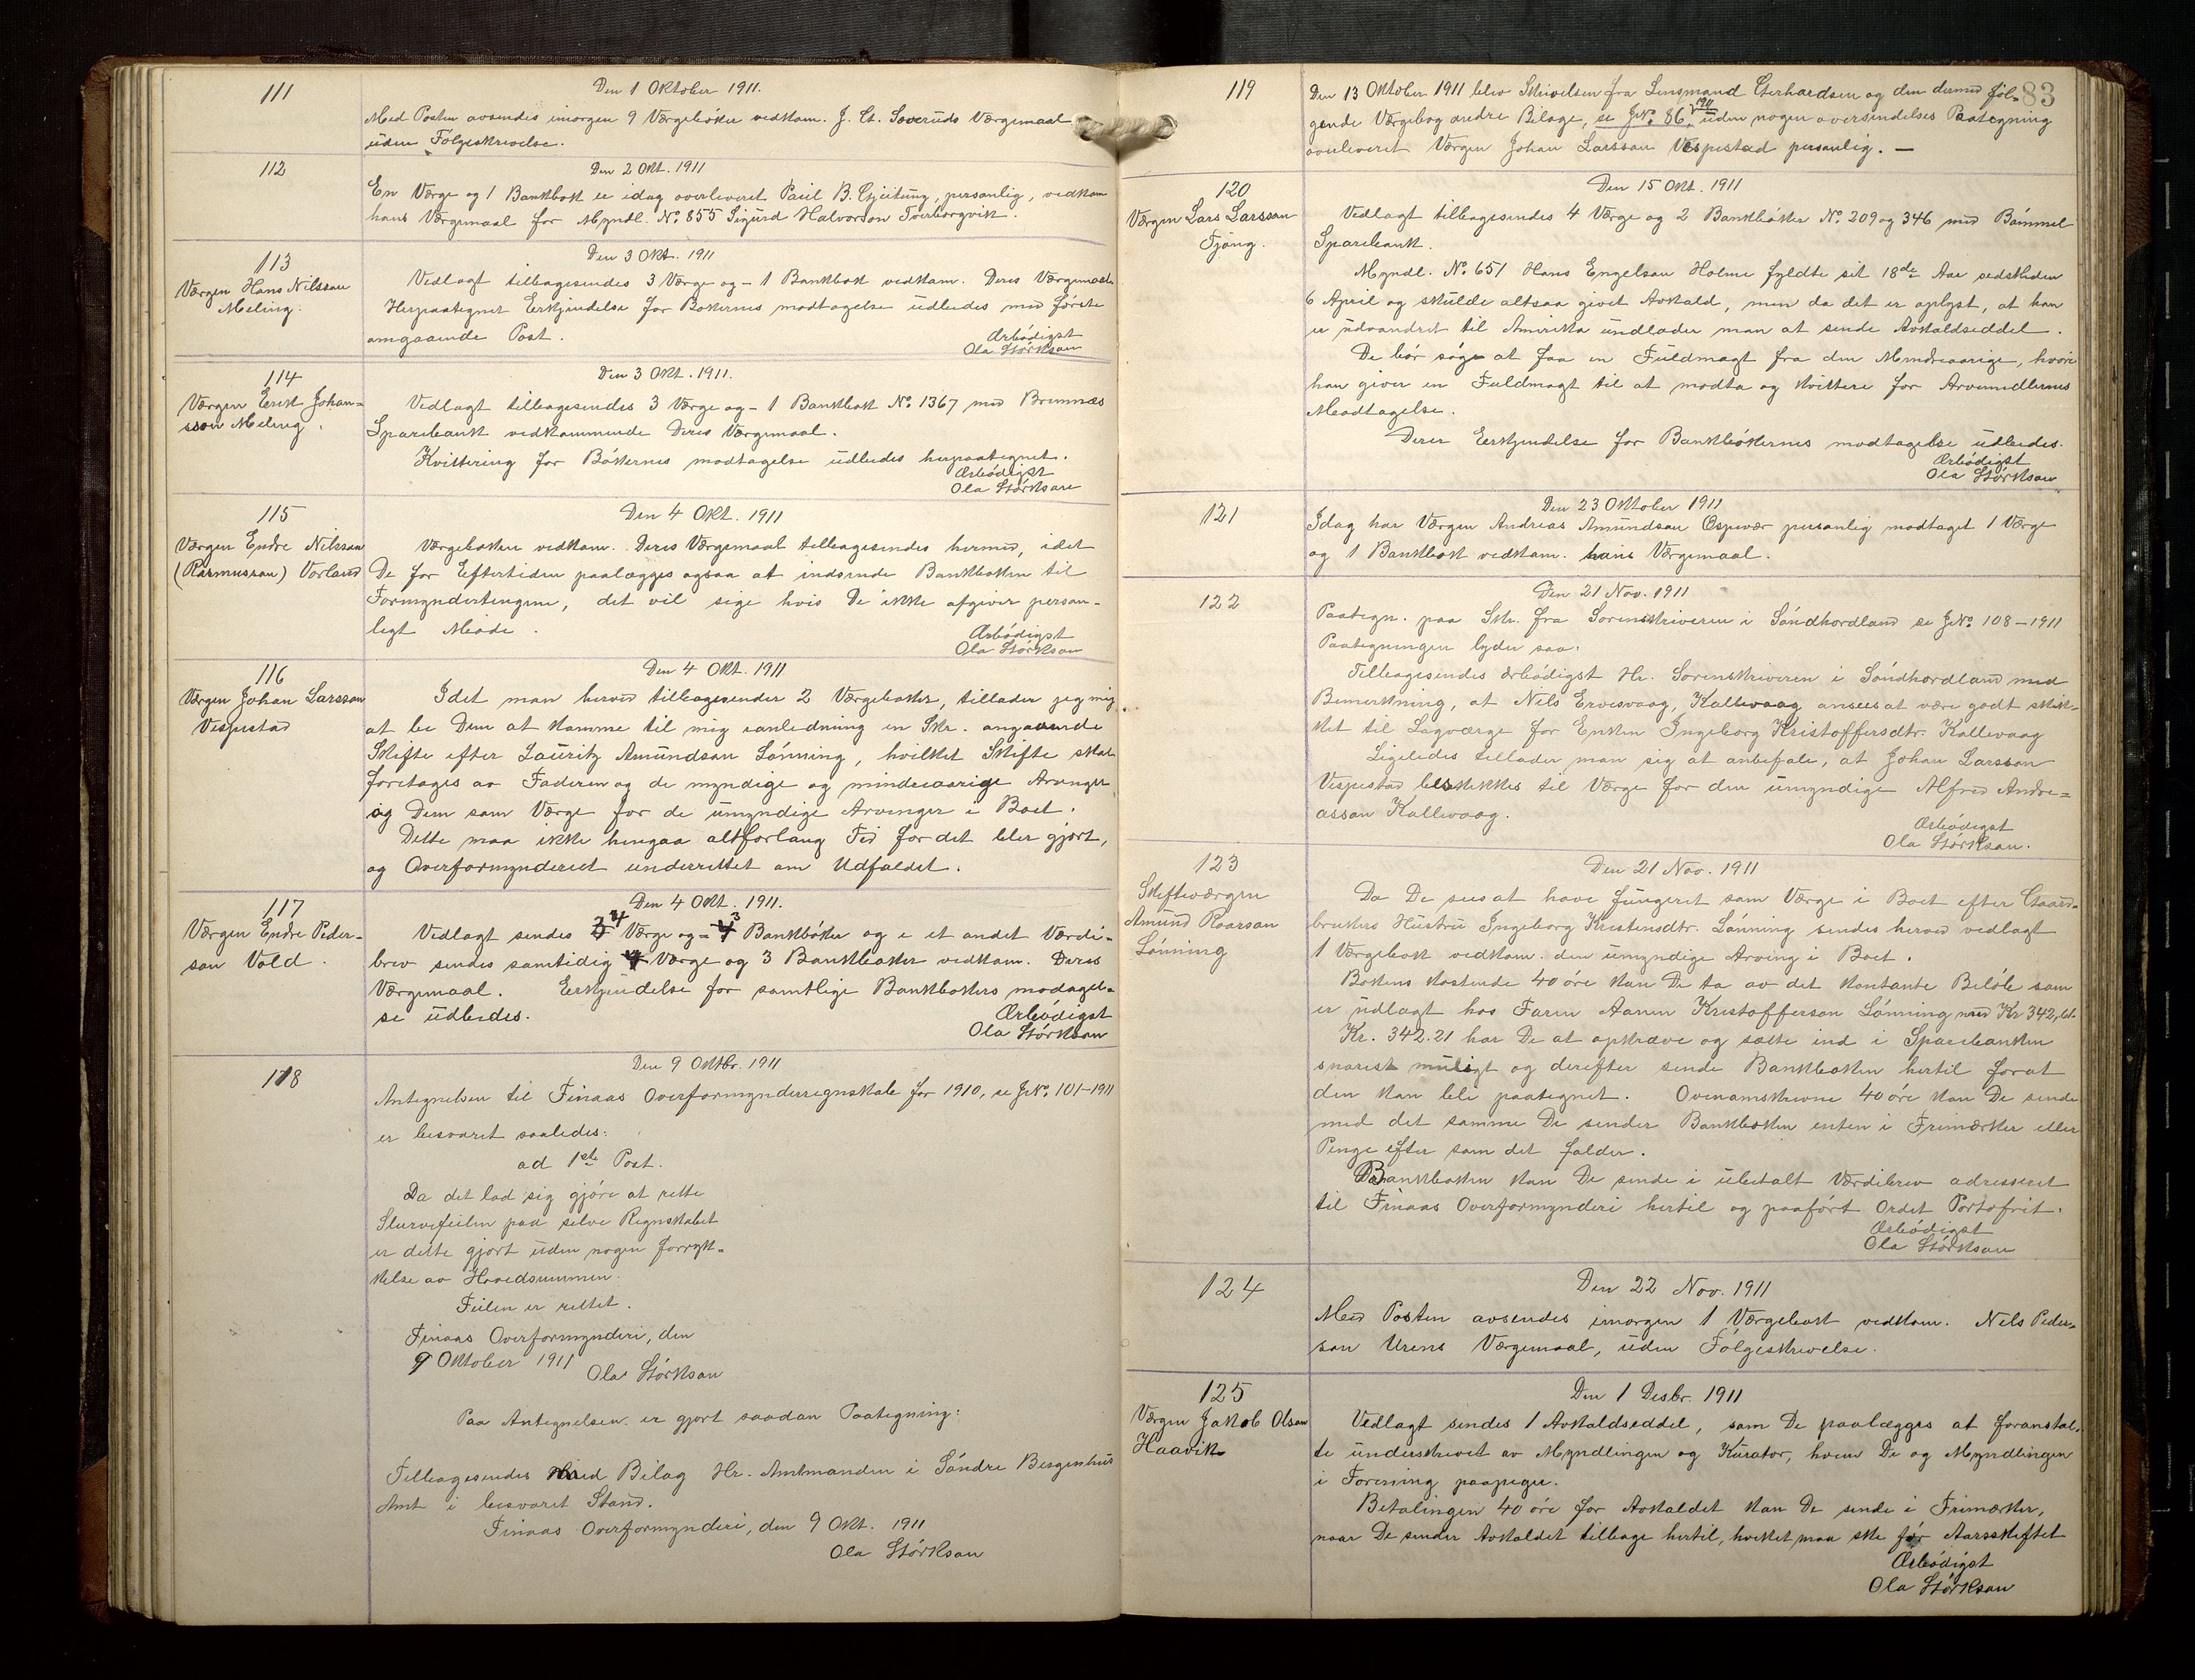 111
Den 1 Oktober 1911.
Med Posten avsendes imorgen 9 Værgebøker vedkom. J. Ct. Soveruds Værgemaal
uden Følgeskrivelse.
112
Den 2 Okt. 1911
En Værge og 1 Bankbok er idag overleveret Paul B. Gjeitung, personlig, vedkom
hans Værgemaal for Myndl. No. 855 Sigurd Halvorson Toerborgvik.
113
Værgen Hans Nilsson
Meling.
Den 3 Okt. 1911
Vedlagt tilbagesendes 3 Værge og - 1 Bankbok vedkom. Deres Værgemaal.
Herpaategnet Erkjendelse for Bokernes modtagelse udbedes med første
omgaaende Post.
Ærbødigst
Ola Størkson
114
Værgen Erik Johan=
sson Meling.
Den 3 Okt. 1911.
Vedlagt tilbagesendes 3 Værge og - 1 Bankbok No. 1367 med Bremnæs
Sparebank vedkommende Deres Værgemaal.
Kvittering for Bøkernes modtagelse udbedes herpaategnet.
Ærbødigst
Ola Størkson
115
Værgen Endre Nilsson
(Rasmusson) Vorland
Den 4 Okt. 1911
Værgeboken vedkom. Deres Værgemaal tilbagesendes hermed, idet
De for Eftertiden paalægges ogsaa at indsende Bankboken til
Formyndertingene, det vil sige hvis De ikke afgiver person-
ligt Møde.
Ærbødigst
Ola Størkson
116
Værgen Johan Larsson
Vespestad
Den 4 Okt. 1911
Idet man herved tilbagesender 2 Værgebøker, tillader jeg mig
at be Dem at komme til mig ianledning en Skr. angaaende
Skifte efter Lauritz Amundson Lønning, hvilket Skifte skal
foretages av Faderen og de myndige og mindreaarige Arvinger
og Dem som Værge for de umyndige Arvinger i Boet.
Dette maa ikke hengaa altforlang Tid før det blir gjort,
og Overformynderiet underrettet om Udfaldet.
117
Værgen Endre Peder-
son Vold.
Den 4 Okt. 1911.
Vedlagt sendes 4 Værge og - 3 Bankbøker og i et andet Værdi-
brev sendes samtidig 4 Værge og 3 Bankbøker vedkom. Deres
Værgemaal. Erkjendelse for samtlige Bankbokers modagel-
se udbedes.
Ærbødigst
Ola Størkson
118
Den 9 Oktbr. 1911
Antegnelsen til Finaas Overformynderregnskab for 1910, se J.No. 101-1911
er besvaret saaledes:
ad 1ste Post.
Da det lod sig gjøre at rette
Slurvefeilen paa selve Regnskabet
er dette gjort uden nogen forryk=
kelse av Hovedsummen.
Feilen er rettet.
Finaas Overformynderi, den
9 Oktober 1911
Ola Størkson
Paa Antegnelsen er gjort saadan Paategning:
Tilbagesendes med Bilag Hr. Amtmanden i Søndre Bergenhus
Amt i besvaret Stand.
Finaas Overformynderi, den 9 Okt. 1911
Ola Størkson
83
119
Den 13 Oktober 1911 blev Skrivelsen fra Lensmand Gerhardsen og den dermed føl-
gende Værgebog andre Bilage, se J.No. 86, 1911 uden nogen oversendelses Paategning
overleveret Værgen Johan Larsson Vespestad personlig. —
120
Værgen Lars Larsson
Fjøng.
Den 15 Okt. 1911
Vedlagt tilbagesendes 4 Værge og 2 Bankbøker No. 209 og 346 med Bømmel
Sparebank.
Myndl. No. 651 Hans Engelson Holme fyldte sit 18de Aar sidstleden
6 April og skulde altsaa givet Avkald, men da det er oplyst, at han
er udvandret til Amerika undlader man at sende Avkaldseddel.
De bør søge at faa en Fuldmagt fra den Mindreaarige, hvori
han giver en Fuldmagt til at modta og kvittere for Arvemidlernes
Modtagelse.
Deres Erkjendelse for Bankbøkernes modtagelse udbedes.
Ærbødigst
Ola Størkson
121
Den 23 Oktober 1911
Idag har Værgen Andreas Amundson Espevær personlig modtaget 1 Værge
og 1 Bankbok vedkom. hans Værgemaal.
122
Den 21 Nov. 1911
Paategn. paa Skr. fra Sorenskriveren i Søndhordland se J.No. 108-1911
Paategningen lyder saa:
Tilbagesendes ærbødigst Hr. Sorenskriveren i Søndhordland med
Bemerkning, at Nils Ervesvaag, Kallevaag, ansees at være godt skik-
ket til Lagværge for Enken Ingeborg Kristoffersdtr. Kallevaag
Ligeledes tillader man sig at anbefale, at Johan Larsson
Vespestad beskikkes til Værge for den umyndige Alfred Andre=
asson Kallevaag.
Ærbødigst
Ola Størkson.
123
Skifteværgen
Amund Roarson
Lønning
Den 21 Nov. 1911
Da De sees at have fungeret som Værge i Boet efter Gaard-
brukers Hustru Ingeborg Kristensdtr. Lønning sendes herved vedlagt
1 Værgebok vedkom. den umyndige Arving i Boet.
Bokens kostende 40 øre kan De ta av det kontante Beløb som
er udlagt hos Faren Aanen Kristofferson Lønning med Kr 342,61.
Kr. 342.21 har De at opkræve og sætte ind i Sparebanken
snarest muligt og derefter sende Bankboken hertil forat
den kan bli paategnet. Ovennamskrevne 40 øre kan De sende
med det samme De sender Bankboken enten i Frimærker eller
Penge efter som det falder.
Bankboken kan De sende i ubetalt Værdibrev adresseret
til Finaas Overformynderi hertil og paaført Ordet Portofrit.
Ærbødigst
Ola Størkson
124
Den 22 Nov. 1911
Med Posten avsendes imorgen 1 Værgebok vedkom. Nils Peder=
son Urens Værgemaal, uden Følgeskrivelse.
125
Værgen Jakob Olson
Haavik
Den 1 Desbr. 1911
Vedlagt sendes 1 Avkaldseddel, som De paalægges at foranstal-
te underskrevet av Myndlingen og Kurator, hvem De og Myndlingen
i Forening paapeger.
Betalingen 40 øre for Avkaldet kan De sende i Frimærker,
naar De sender Avkaldet tilbage hertil, hvilket maa ske før Aarsskiftet
Ærbødigst
Ola Størkson